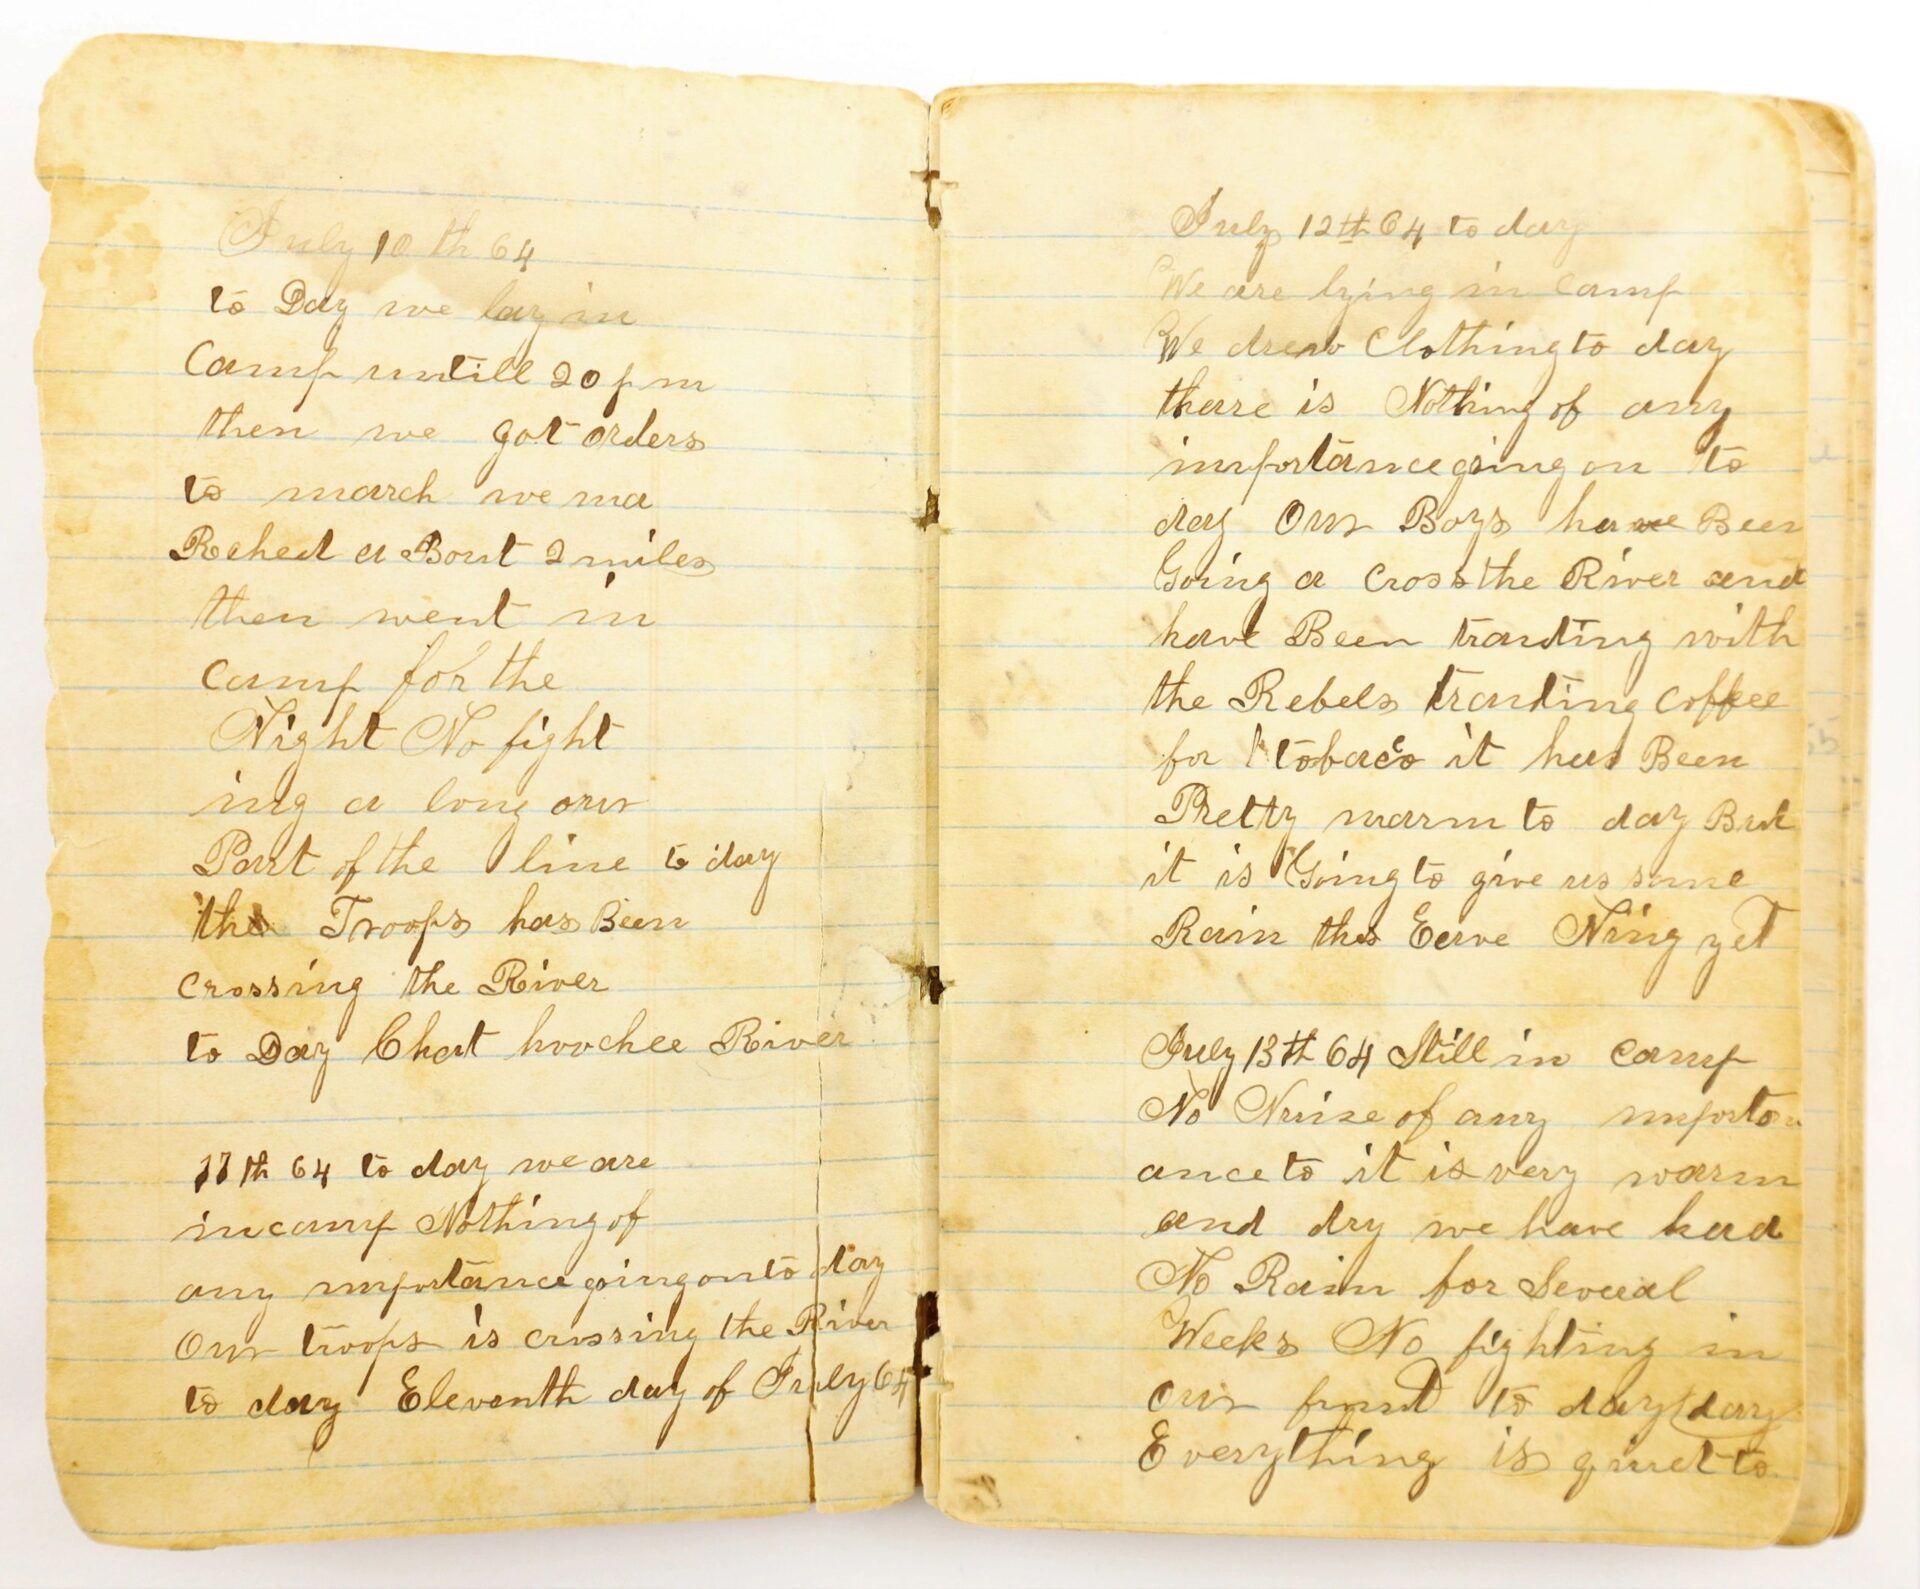 July 10 th 64
to Day we lay in
Camp untill 20 p m
then we got orders
to march we ma
Rched a Bout 2 miles
then went in
camp for the
Night No fight
ing a long our
Part of the line to day
the Troops has Been
crossing the River
to Day Chat hoochee River
11 th 64 to day we are
in camp Nothing of
any importance going on to day
Our troops is crossing the River
to day Eleventh day of July 64
July 12th 64 to day
We are lying in camp
We drew Clothing to day
thare is Nothing of any
importance going on to
day Our Boys have Been
Going a cross the River and
have Been trading with
the Rebels trading coffee
for tobaco it has Been
Pretty warm to day But
it is Going to give us some
Rain this Eave Ning yet
July 13th 64 Still in camp
No Nuise of any importa
ance to it is very warm
and dry we have had
No Rain for Several
Weeks No fighting in
our frunt to day (day
Everything is quiet to